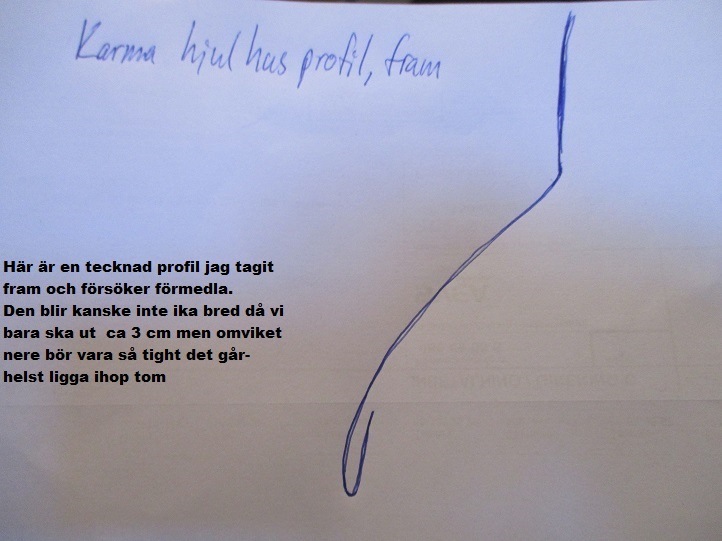 Karma hjulhus profil, fram
Här är en tecknad profil jag tagit
fram och försöker förmedla.
Den blir kanske inte ika bred då vi
bara ska ut ca 3 cm men omviket
nere bör vara så tight det går-
helst ligga ihop tom